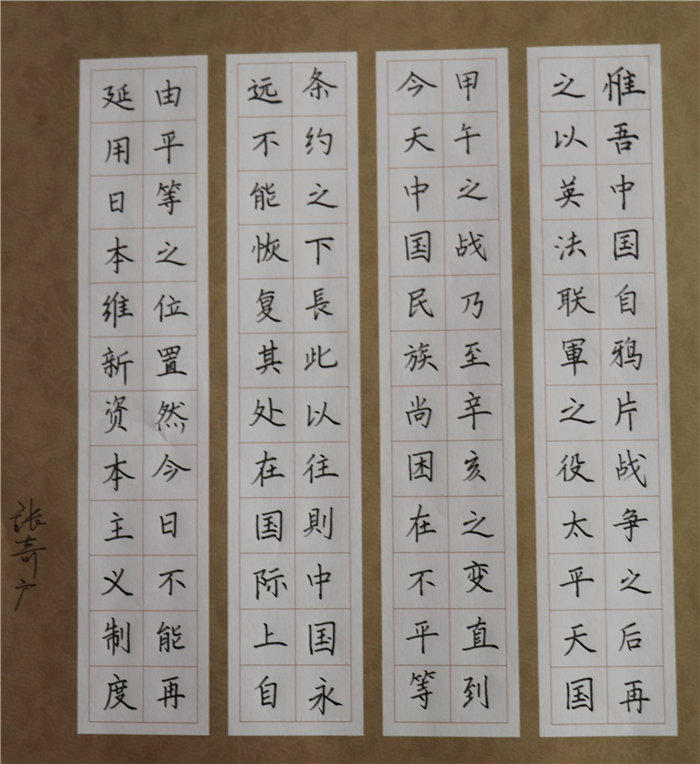 惟吾中国自鸦片战争之后再
之以英法联軍之役太平天国
甲午之战乃至辛亥之变直到
今天中国民族尚困在不平等
条约之下長此以往則中国永
远不能恢复其处在国际上自
由平等之位置然今日不能再
延用日本维新资本主义制度
张奇广